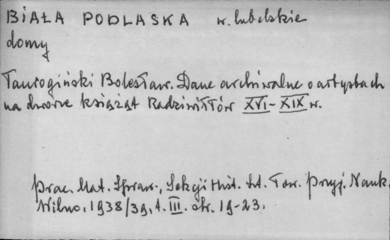 BIAŁA PODLASKA w. lubelskie
domy
Taurogiński Bolesław. Dane archiwalne o artystach
na dworze książąt Radziwiłłów XVI-XIX w.
Prac. Mat. Spraw., Sekcji Hist. Szt. Tow. Przyj. Nauk.
Wilno. 1938/39, t. III. str. 19-23.